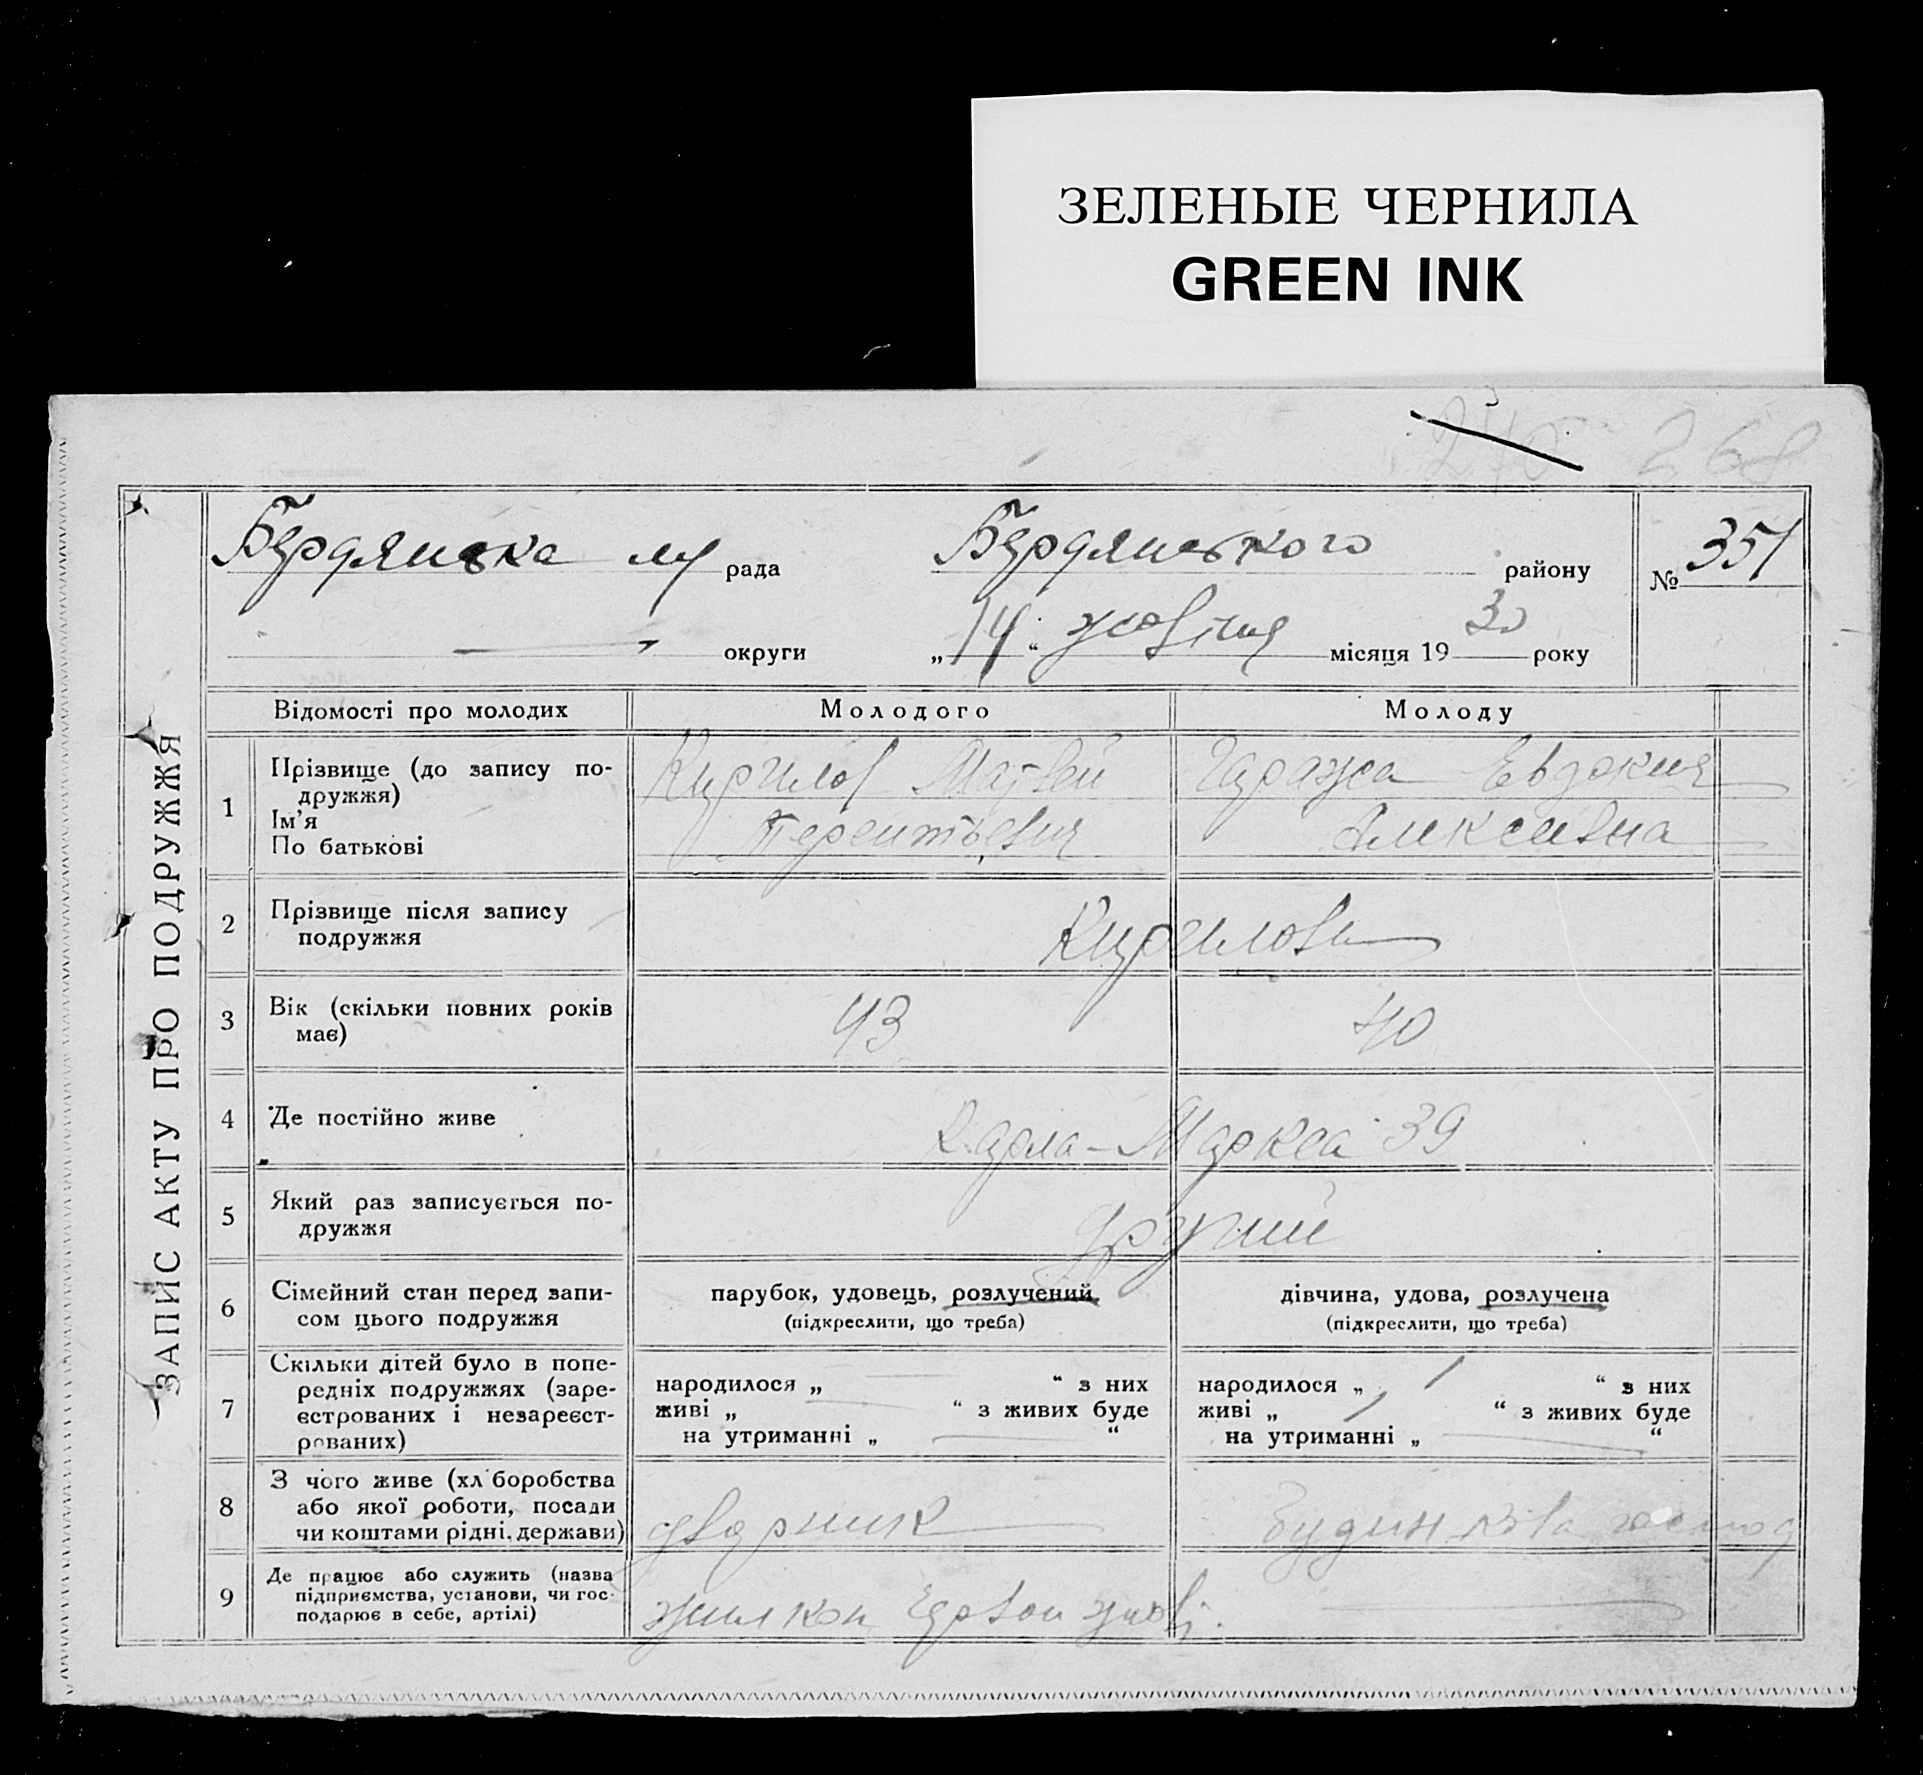 ЗЕЛЕНЫЕ ЧЕРНИЛА
GREEN INK
268
Бердянська м рада Бердянського району № 351
округи „14“ жовтня місяця 1930 року
ЗАПИС АКТУ ПРО ПОДРУЖЖЯ
Відомості про молодих Молодого Молоду
1 Прізвище (до запису по-
дружжя)
Ім’я
По батькові
Кирилов Матвей
Терентьевич
Евдокия
Алексеивна
2 Прізвище після запису
подружжя
Кирилови
3 Вік (скільки повних років
має)
43 40
4 Де постійно живе
Карла-Маркса 39
5 Який раз записується по-
дружжя
другий
6 Сімейний стан перед запи-
сом цього подружжя
парубок, удовець, розлучений
(підкреслити, що треба)
дівчина, удова, розлучена
(підкреслити, що треба)
7 Скільки дітей було в попе-
редніх подружжях (заре-
єстрованих і незареєст-
рованих)
народилося „ “ з них
живі „ “ з живих буде
на утриманні „ “
народилося „ 1 “ з них
живі „ 1 “ з живих буде
на утриманні „ “
8 З чого живе (хліборобства
або якої роботи, посади
чи коштами рідні, держави)
дворник
будинкова господ
9 Де працює або служить (назва
підприємства, установи, чи гос-
подарює в себе, артілі)
жилкоп